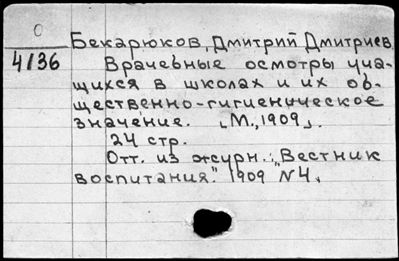 О
4136
Бекарюков, Дмитрий Дмитриев.
Врачебные осмотры уча-
щихся в школах и их об-
щественно-гигиеническое
значение. [М., 1909].
24 стр.
Отт. из журн.: "Вестник
воспитания." 1909 N4.